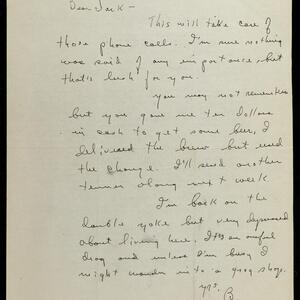 Dear Jack —
This will take care of
those phone calls. I'm sure nothing
was said of any importance but
that's lush for you.
You may not remember
but you gave me ten dollars
in cash to get some beer, I
delivered the brew but used
the change. I'll send another
tenner along next week
I'm back on the
double yoke but very depressed
about living here. It's an awful
drag and unless I'm busy I
might wander in to a grog shop.
yrs.
B